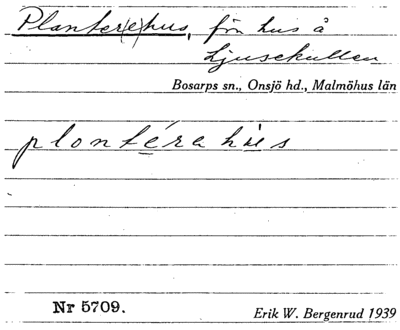 Planter(e)hus, förr hus å
Ljusekullen
Bosarps sn., Onsjö hd., Malmöhus län
plontérahus
Nr 5709.
Erik W. Bergenrud 1939